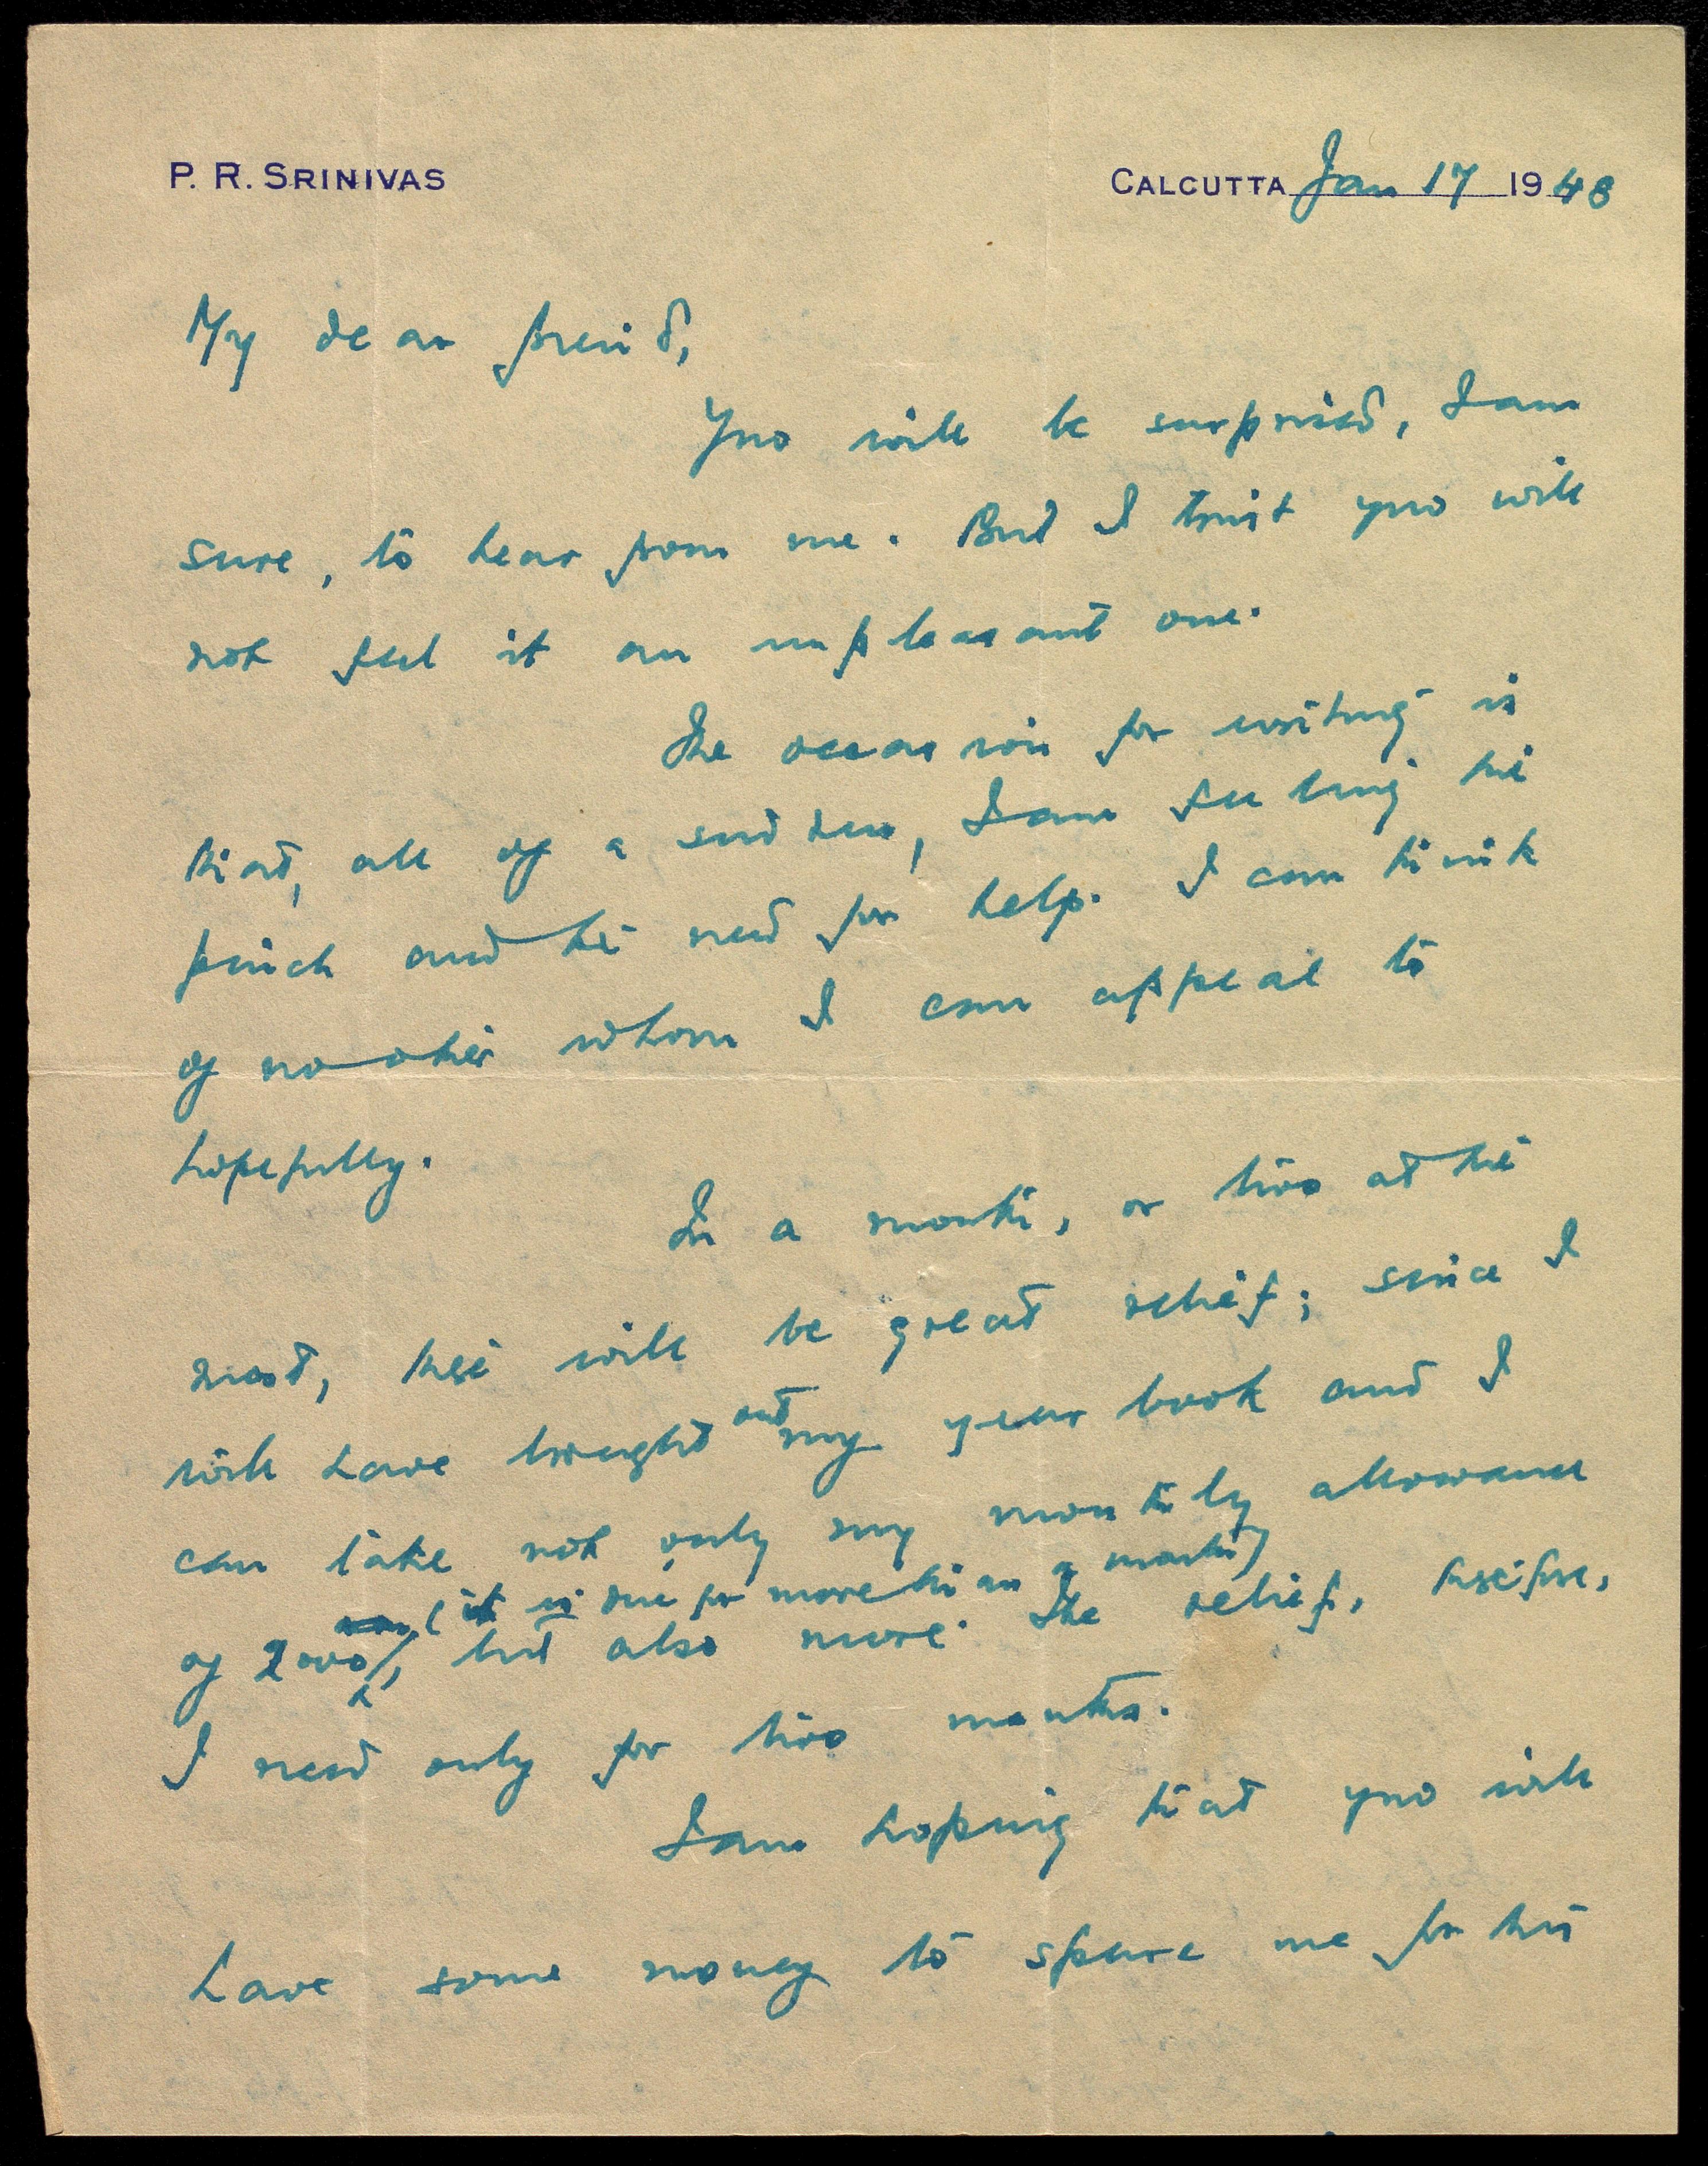 P. R. SRINIVAS
CALCUTTA Jan 17 1948
My dear friend,
You will be surprised, I am
sure, to hear from me. But I trust you will
not feel it an unpleasant one.
The occasion for writing is
that, all of a sudden, I am feeling the
pinch and the need for help. I can think
of no other whom I can appeal to
hopefully.
In a month, or two at the
most, there will be great relief; since I
will have brought out my year book and I
can take not only my monthly allowance
(it is due for more than a month)
of 2000/, but also more. The relief, therefore,
I need only for two months.
I am hoping that you will
have some money to spare me for this